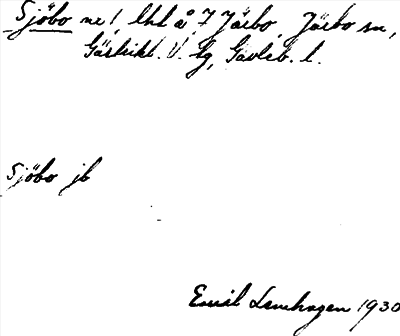 Sjöbo ne! lht å 7 Järbo, Järbo sn,
Gästrikl. V. tg, Gävleb. l.
Sjöbo jb
Emil Lavehagen 1930